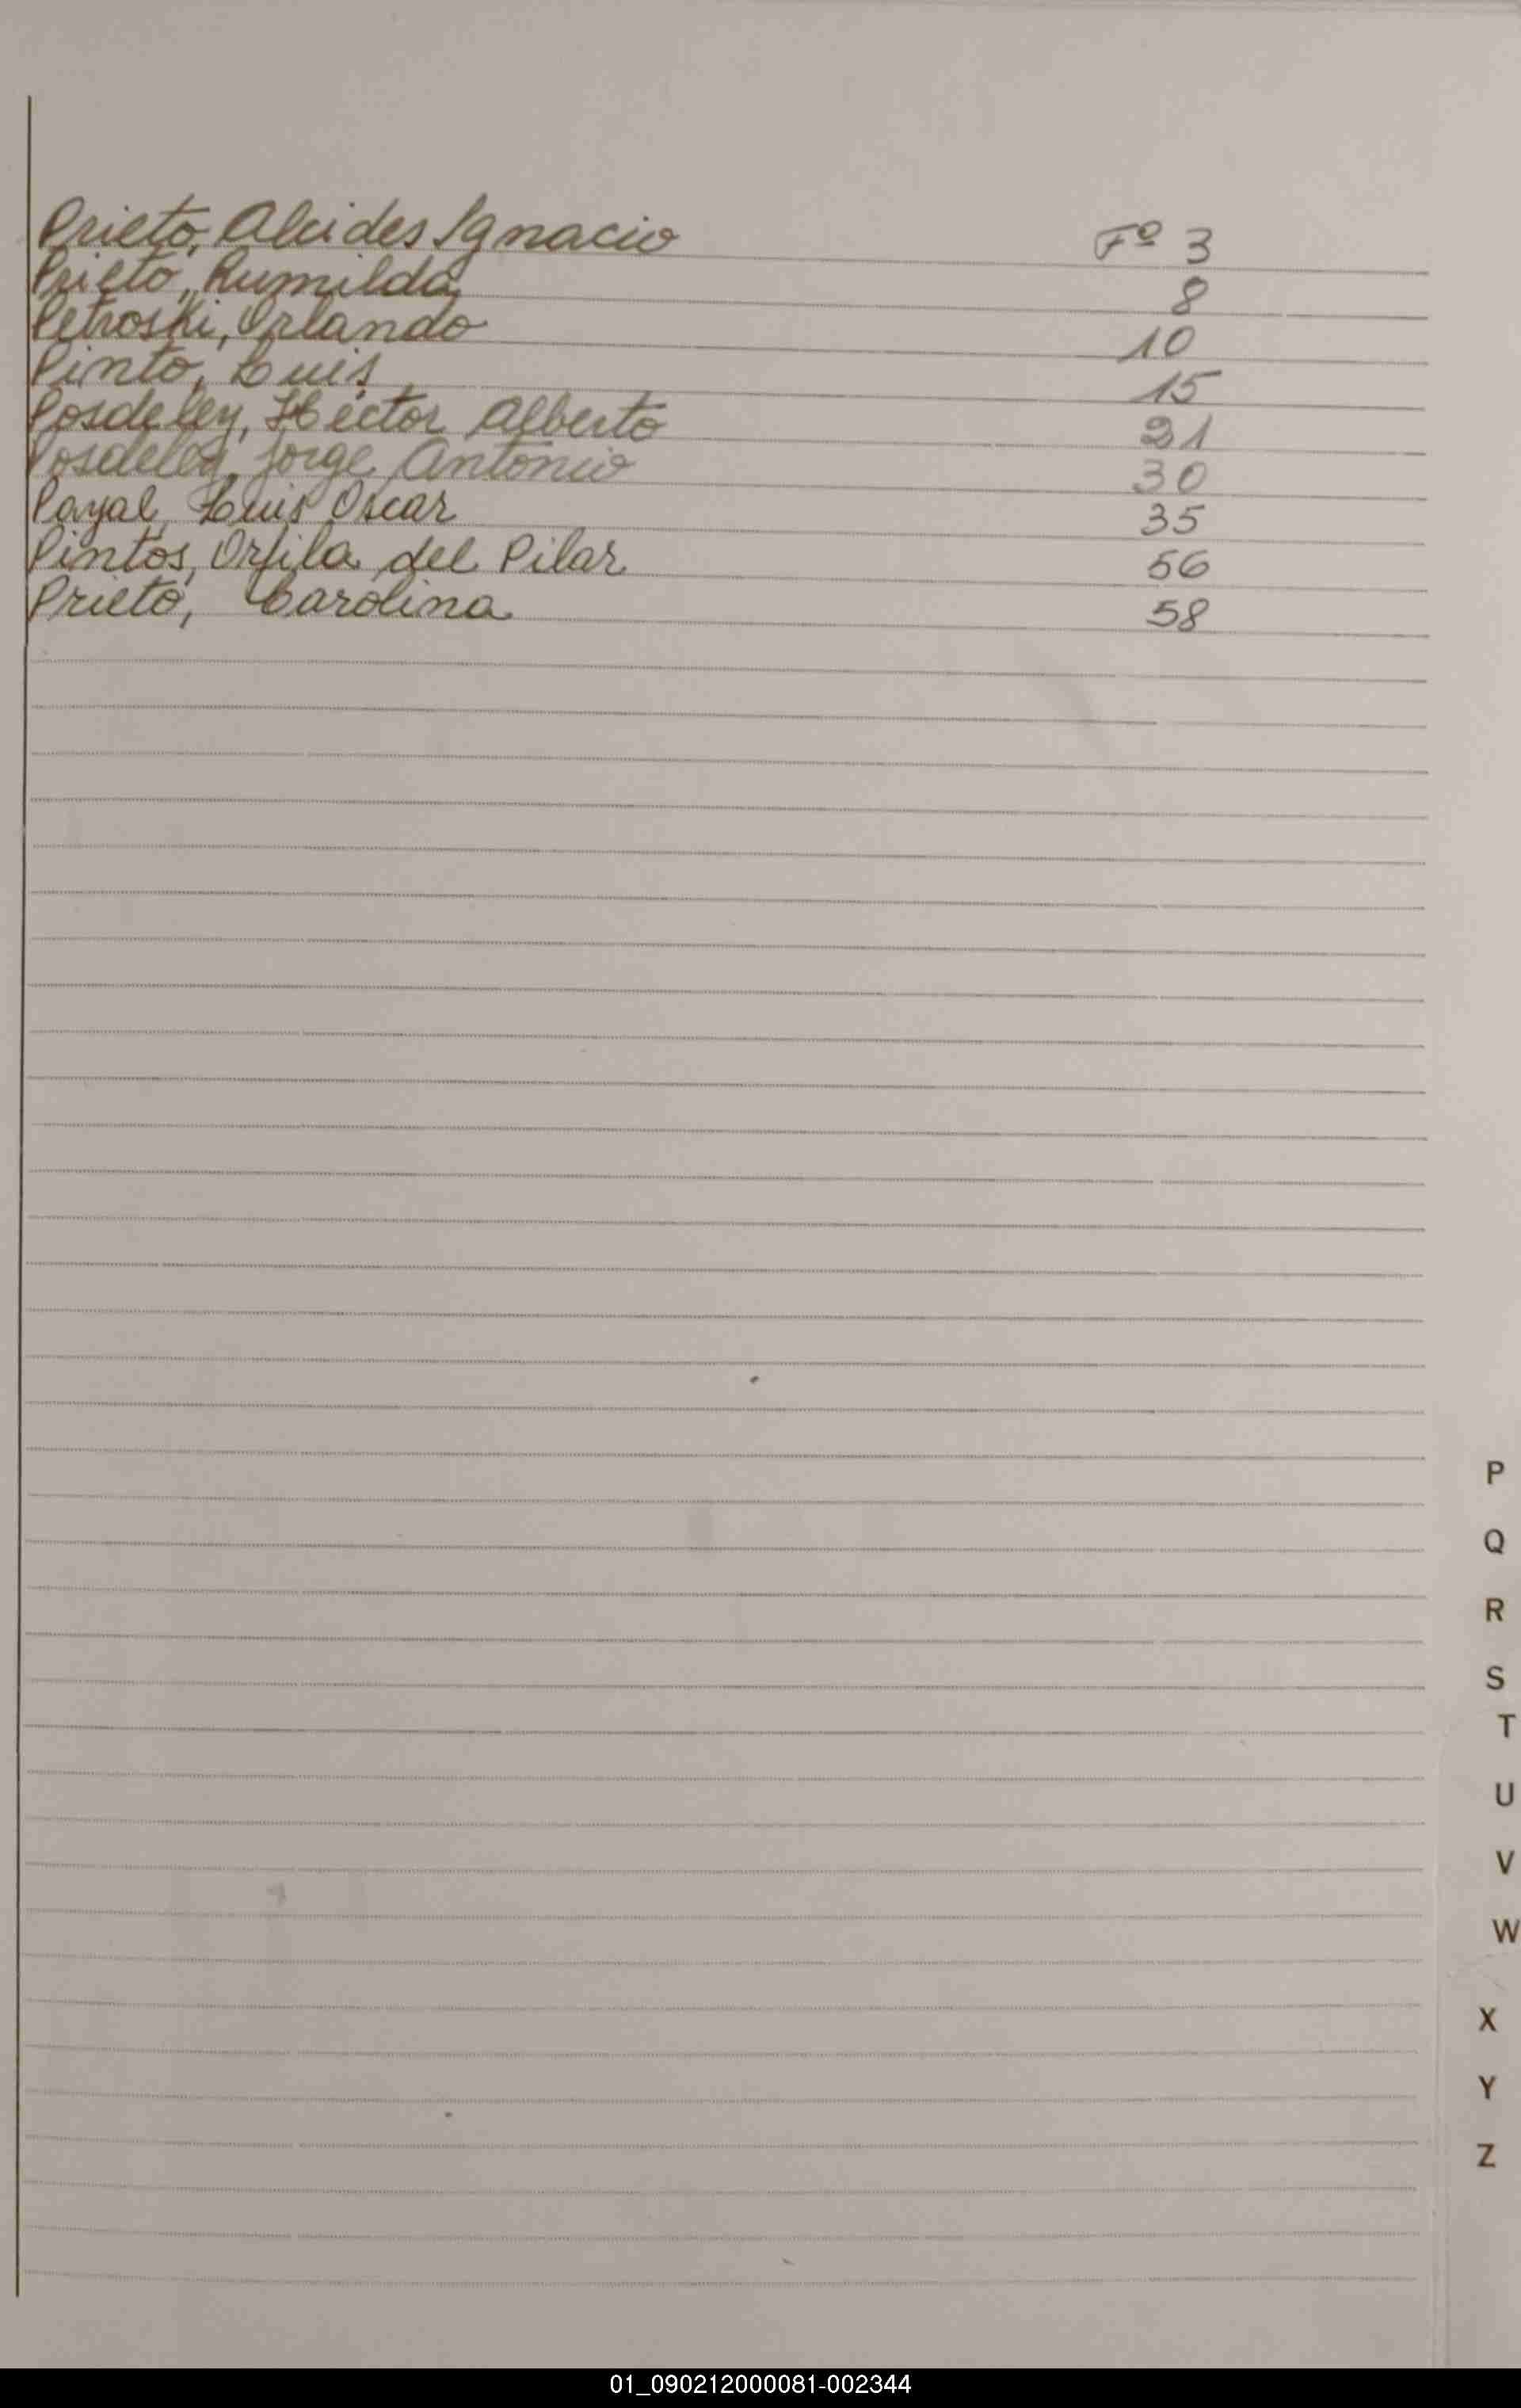 Prieto, Alcides Ignacio Fº 3
Prieto, Rumilda 8
Petroski, Orlando 10
Pinto, Luis 15
Posdeley, Héctor Alberto 21
Posdeley, Jorge Antonio 30
Payal, Luis Oscar 35
Pintos, Orfila del Pilar 56
Prieto, Carolina 58
P
Q
R
S
T
U
V
W
X
Y
Z
01_090212000081-002344